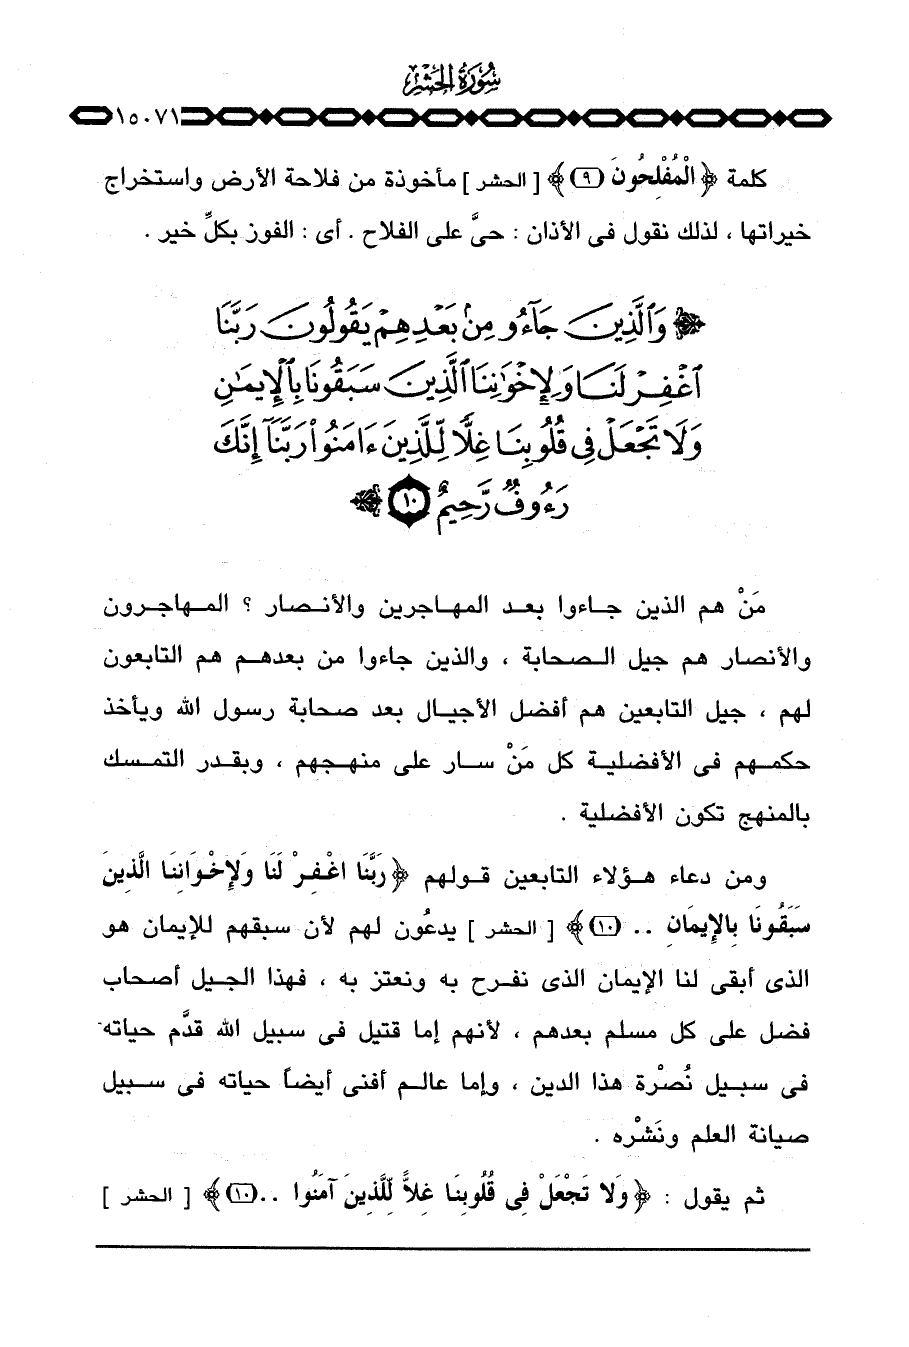 سُورَةُ الحَشْرِ
١٥٠٧١
كلمة ﴿الْمُفْلِحُونَ (٩)﴾ [ الحشر ] مأخوذة من فلاحة الأرض واستخراج
خيراتها ، لذلك نقول فى الأذان : حىَّ على الفلاح . أى : الفوز بكلِّ خير .
﴿ وَٱلَّذِينَ جَآءُو مِنۢ بَعْدِهِمْ يَقُولُونَ رَبَّنَا
ٱغْفِرْ لَنَا وَلِإِخْوَٰنِنَا ٱلَّذِينَ سَبَقُونَا بِٱلْإِيمَٰنِ
وَلَا تَجْعَلْ فِى قُلُوبِنَا غِلًّا لِّلَّذِينَ ءَامَنُوا۟ رَبَّنَآ إِنَّكَ
رَءُوفٌ رَّحِيمٌ ١٠ ﴾
مَنْ هم الذين جاءوا بعد المهاجرين والأنصار ؟ المهاجرون
والأنصار هم جيل الصحابة ، والذين جاءوا من بعدهم هم التابعون
لهم ، جيل التابعين هم أفضل الأجيال بعد صحابة رسول الله ويأخذ
حكمهم فى الأفضلية كل مَنْ سار على منهجهم ، وبقدر التمسك
بالمنهج تكون الأفضلية .
ومن دعاء هؤلاء التابعين قولهم ﴿رَبَّنَا اغْفِرْ لَنَا وَلِإِخْوَانِنَا الَّذِينَ
سَبَقُونَا بِالإِيمَانِ .. (١٠)﴾ [ الحشر ] يدعُون لهم لأن سبقهم للإيمان هو
الذى أبقى لنا الإيمان الذى نفرح به ونعتز به ، فهذا الجيل أصحاب
فضل على كل مسلم بعدهم ، لأنهم إما قتيل فى سبيل الله قدَّم حياته
فى سبيل نُصْرة هذا الدين ، وإما عالم أفنى أيضاً حياته فى سبيل
صيانة العلم ونَشْره .
ثم يقول : ﴿وَلا تَجْعَلْ فِي قُلُوبِنَا غِلاًّ لِّلَّذِينَ آمَنُوا ..(١٠)﴾ [ الحشر ]